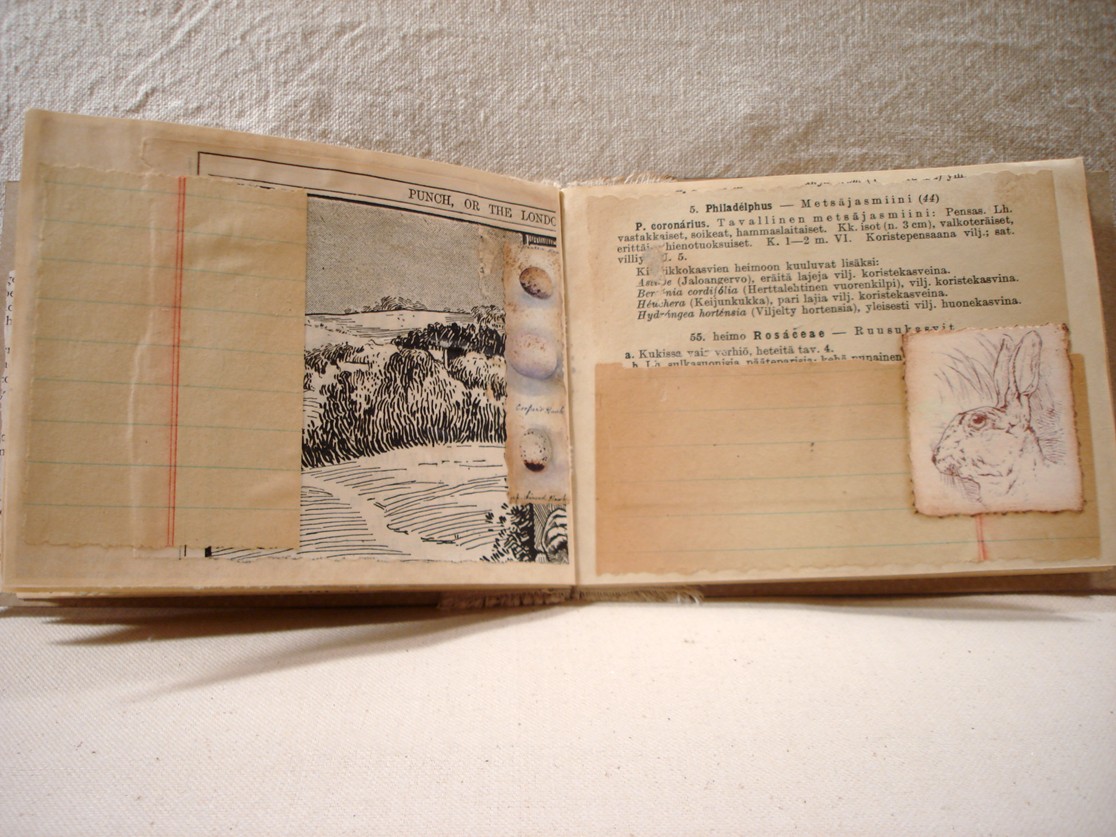 PUNCH, OR THE LONDO
5. Philadélphus — Metsäjasmiini (44)
P. coronárius. Tavallinen metsäjasmiini: Pensas. Lh.
vastakkaiset, soikeat, hammaslaitaiset. Kk. isot (n. 3 cm), valkoteräiset,
erittäi hienotuoksuiset. K. 1—2 m. VI. Koristepensaana vilj.; sat.
villiy 5.
Ki ikkokasvien heimoon kuuluvat lisäksi:
(Jaloangervo), eräitä lajeja vilj. koristekasveina.
Ber nia cordifólia (Herttalehtinen vuorenkilpi), vilj. koristekasvina.
Héuchera (Keijunkukka), pari lajia vilj. koristekasveina.
Hydrángea horténsia (Viljelty hortensia), yleisesti vilj. huonekasvina.
55. heimo Rosáceae — Ruusukasvit
a. Kukissa vain verhiö, heteitä tav. 4.